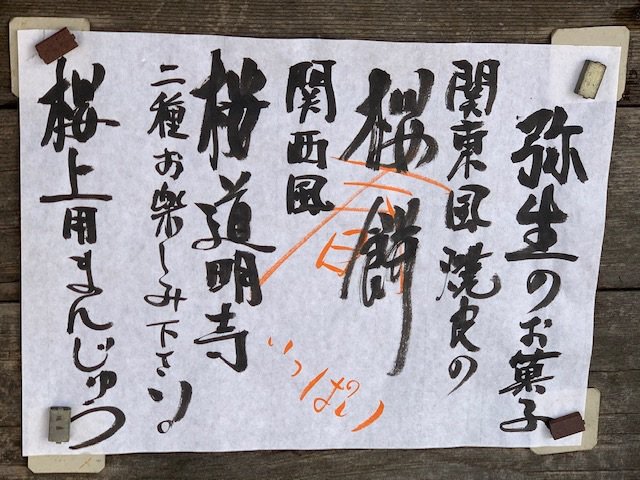 弥生のお菓子
関東風焼皮の
桜餅
関西風
桜道明寺
二種お楽しみ下さい。
桜上用まんじゅう
春
いっぱい